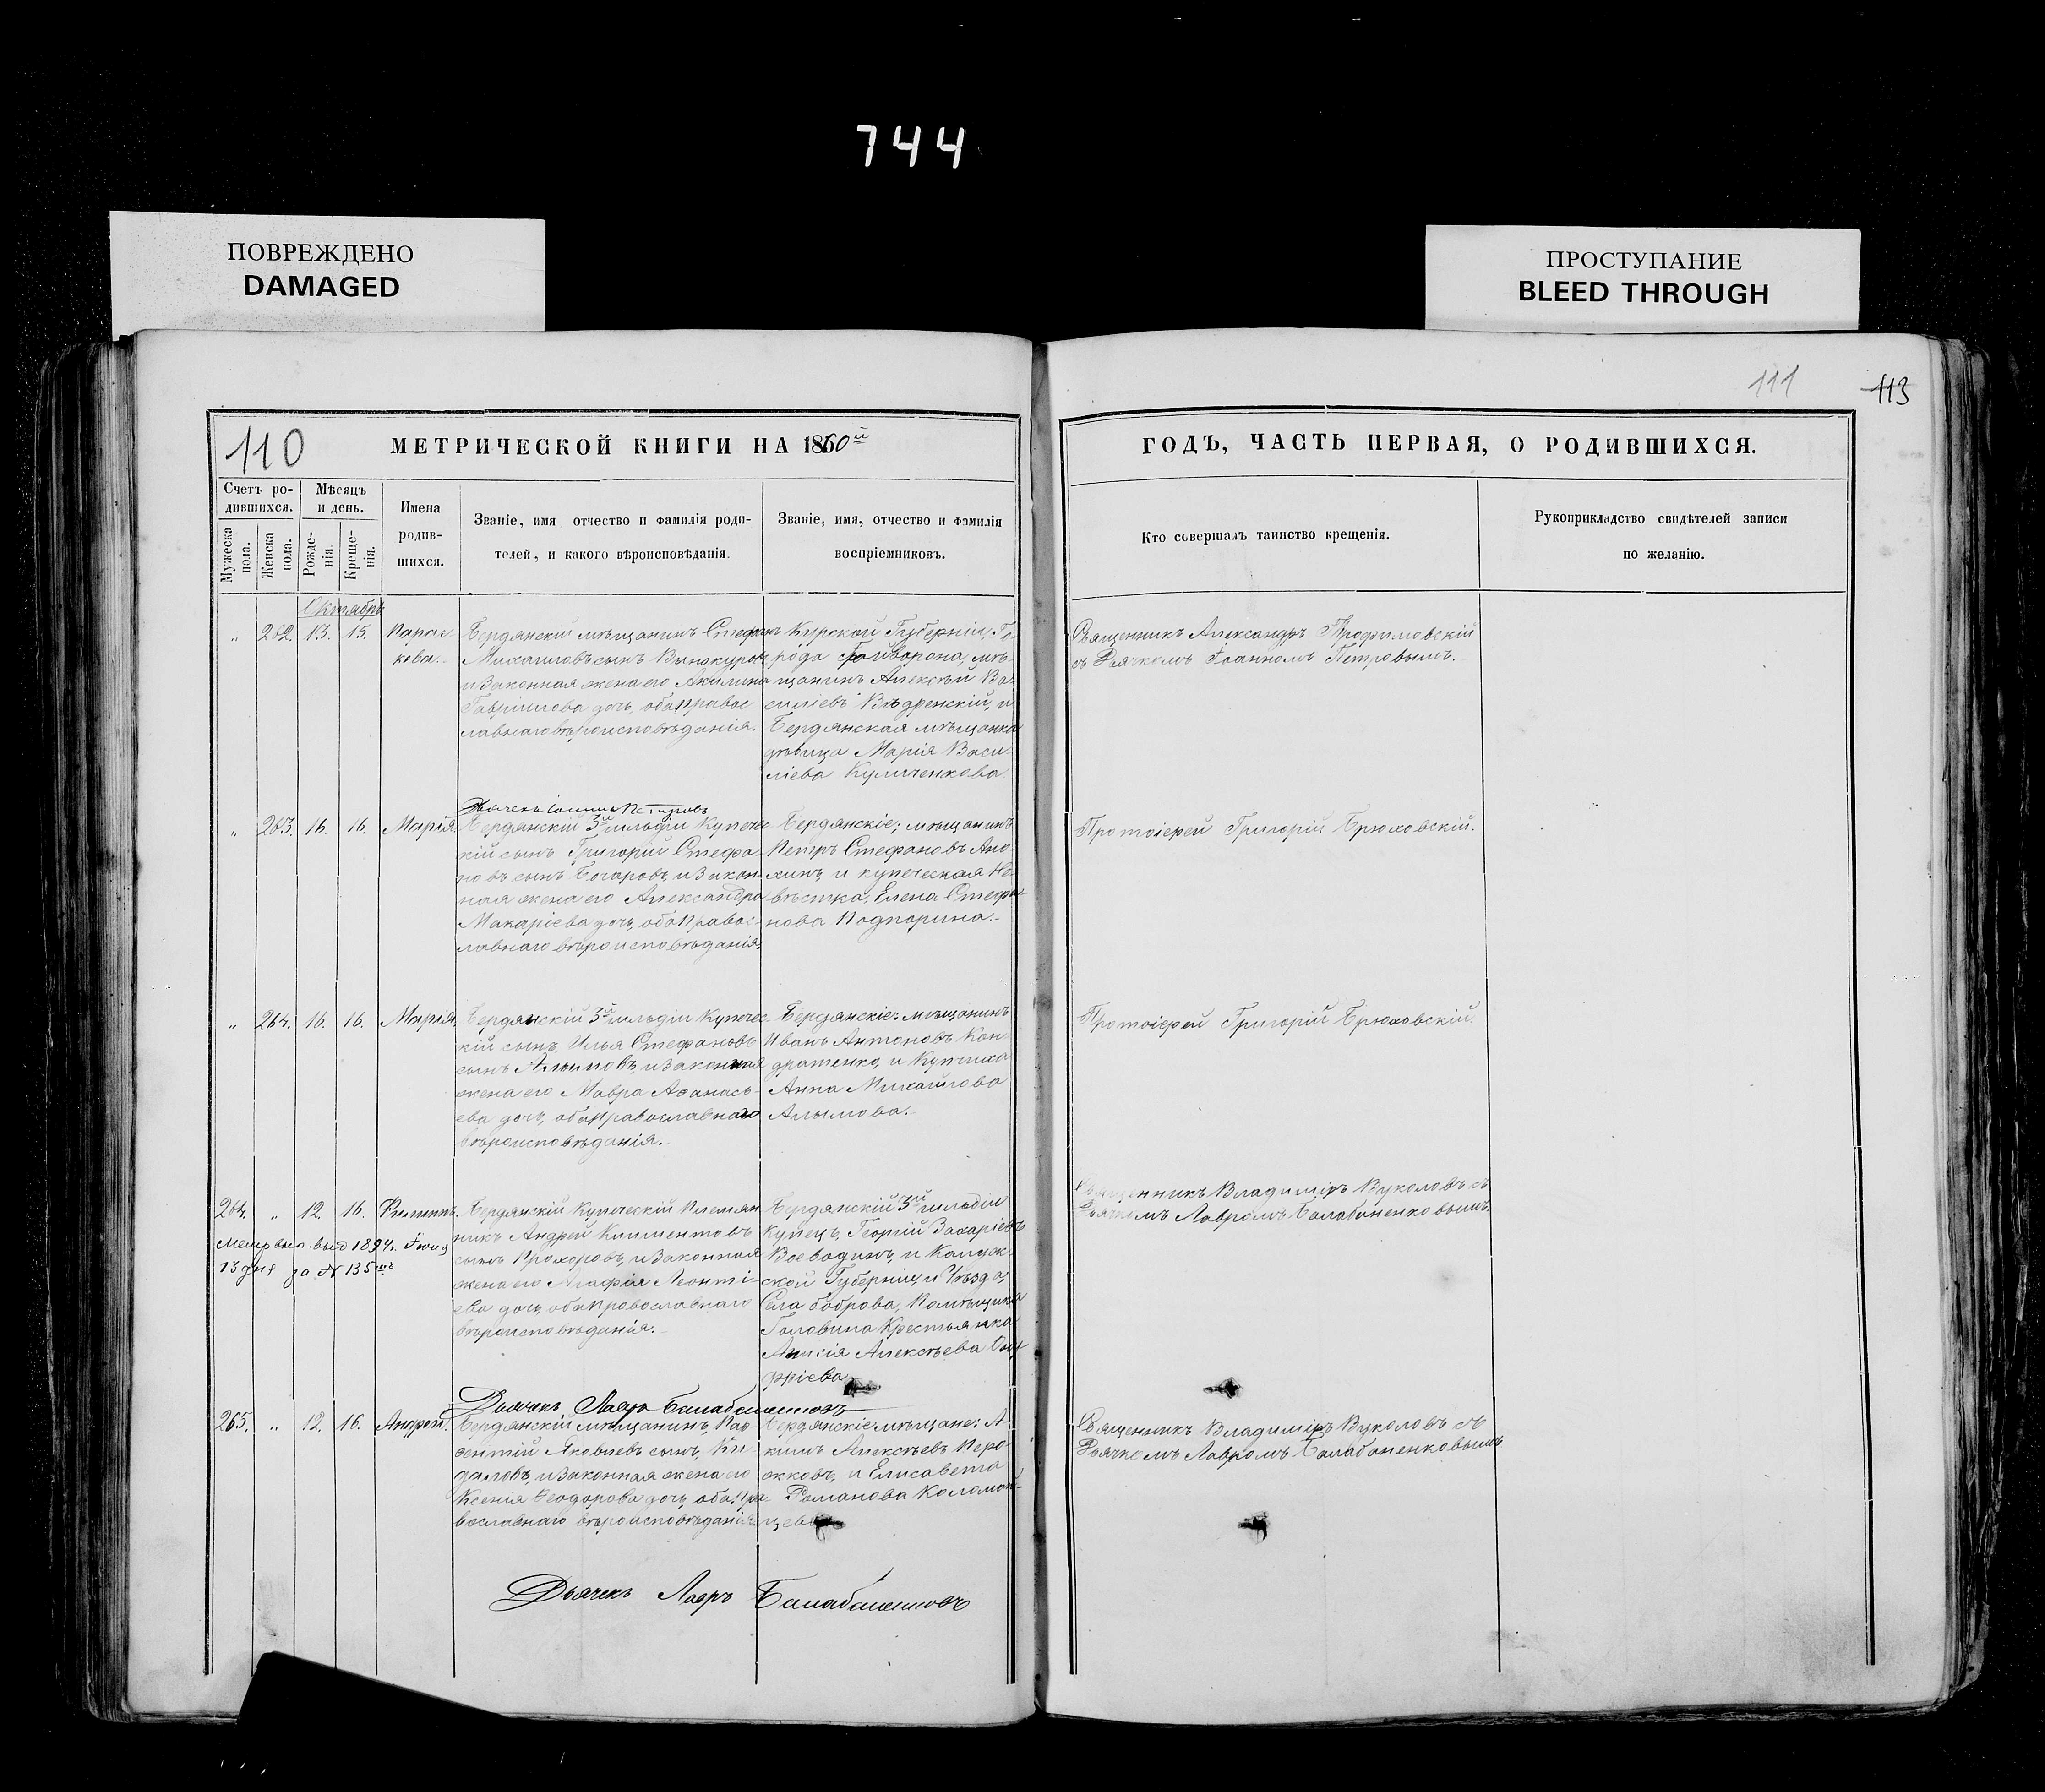 744
ПОВРЕЖДЕНО
DAMAGED
ПРОСТУПАНИЕ
BLEED THROUGH
111
113
110
МЕТРИЧЕСКОЙ КНИГИ НА 1860й
ГОДЪ, ЧАСТЬ ПЕРВАЯ, О РОДИВШИХСЯ.
Счетъ ро-
дившихся.
Мужеска
пола.
Женска
пола.
Мѣсяцъ
и день.
Рожде-
нія.
Креще-
нія.
Имена
родив-
шихся.
Званіе, имя отчество и фамилія роди-
телей, и какого вѣроисповѣданія.
Званіе, имя, отчество и фамилія
воспріемниковъ.
Кто совершалъ таинство крещенія.
Рукоприкладство свидѣтелей записи
по желанію.
Октябрь
„ 262. 13. 15.
Парас-
кева.
Бердянскій мѣщанинъ Стефанъ
Михаиловъ сынъ Винокуровъ
и законная жена его Акилина
Гавріилова дочь, оба правос
лавнаго вѣроисповѣданія.
Курской Губерніи, Го-
рода Грайворона, мѣ-
щанинъ Алексѣй Ва-
силіевъ и
Бердянская мѣщанка
дѣвица Марія Васи-
ліева Куличенкова
Священникъ Александръ Трофимовскій
съ Дьячкомъ Іоанномъ Петровымъ.
Дьячекъ Іоаннъ Петровъ
„ 263. 16. 16. Марія
Бердянскій 3й гильдіи Купечес
кій сынъ Григорій Стефа-
новъ сынъ и закон-
ная жена его Александра
Макаріева дочь, оба правос-
лавнаго вѣроисповѣданія.
Бердянскіе; мѣщанинъ
Петръ Стефановъ Ано-
хинъ, и купеческая Не-
вѣстка, Елена Стефа-
нова Подпорина.
Протоіерей Григорій Брюховскій.
„ 264. 16. 16. Марія.
Бердянскій 3й гильдіи Купечес
кій сынъ Илья Стефановъ
сынъ Алымовъ, и законная
жена его Мавра Аѳанась-
ева дочь, оба православнаго
вѣроисповѣданія.
Бердянскіе: мѣщанинъ
Иванъ Антоновъ Кон
дратенко, и Купчиха
Анна Михайлова
Алымова.
Протоіерей Григорій Брюховскій.
264. „ 12. 16. Филиппъ.
Метр вып. выд 1894г. Іюня
13 дня за № 135мъ
Бердянскій Купеческій Племян
никъ Андрей Климентовъ
сынъ Прохоровъ, и законная
жена его Агафія Леонті
ева дочь, оба православнаго
вѣроисповѣданія.
Бердянскій 3й гильдіи
Купецъ, Георгій Захаріевъ
Воеводинъ, и Калуж-
ской Губерніи, и Уѣзда,
Села Боброва, Помѣщика
Головина Крестьянка
Анисія Алексѣева Ону
фріева
Священникъ Владиміръ Вуколовъ съ
Дьячкомъ Лавромъ Балабаненковымъ.
Дьячекъ Лавръ Балабаненковъ
265. „ 12. 16. Андрей.
Бердянскій мѣщанинъ, Ав
ксентій Яковлевъ сынъ,
и законная жена его
Ксенія Ѳеодорова дочь, оба пра
вославнаго вѣроисповѣданія.
Бердянскіе мѣщане: А-
кимъ Алексѣевъ Перо-
жковъ, и Елисавета
Романова Коломой-
цева
Священникъ Владиміръ Вуколовъ съ
Дьячкомъ Лавромъ Балабаненковымъ
Дьячекъ Лавръ Балабаненковъ